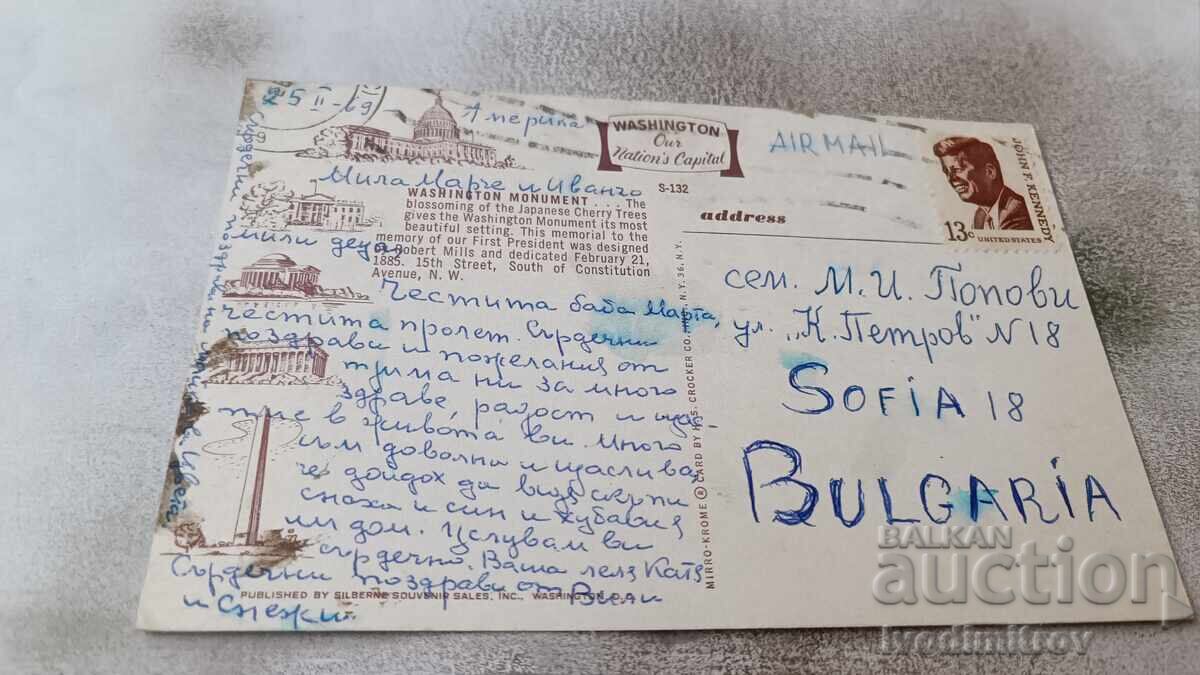 25 II-69
Америка
WASHINGTON
Our
Nation's Capital
AIR MAIL
JOHN F. KENNEDY
13c
UNITED STATES
S-132
Мила Марче и Иванчо
мили деца,
WASHINGTON MONUMENT . . . The
blossoming of the Japanese Cherry Trees
gives the Washington Monument its most
beautiful setting. This memorial to the
memory of our First President was designed
by Robert Mills and dedicated February 21,
1885. 15th Street, South of Constitution
Avenue, N. W.
Честита баба Марта,
честита пролет. Сърдечни
поздрави и пожелания от
трима ни за много
здраве, радост и щас
тие в живота ви. Много
съм доволна и щаслива
че дойдох да видя скъпи
снаха и син и хубавия
им дом. Целувам ви
сърдечно. Ваша леля Катя
Сърдечни поздрави от Вили
и Снежи
Сърдечни поздрави на
PUBLISHED BY SILBERNE SOUVENIR SALES, INC., WASHINGTON, D.C.
MIRRO-KROME ® CARD BY H. S. CROCKER CO., INC., N.Y. 36, N.Y.
address
сем. М. И. Попови
ул. „К. Петров" N 18
SOFIA 18
BULGARIA
BALKAN
auction
ivodimitrov